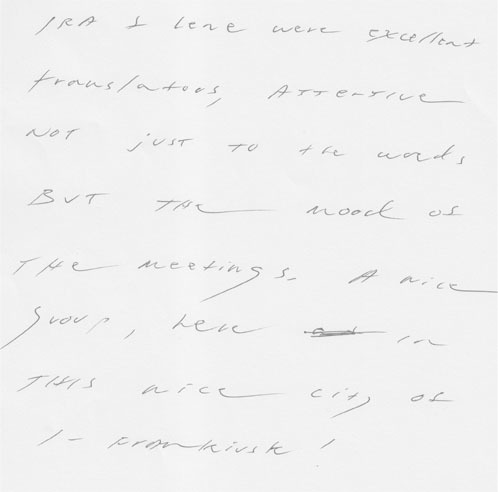 IRA & Lene were excellent
translators, Attentive
NOT just to the words
BUT THE mood of
THE meetings. A nice
group, here in
THIS nice city of
I-Frankivsk!